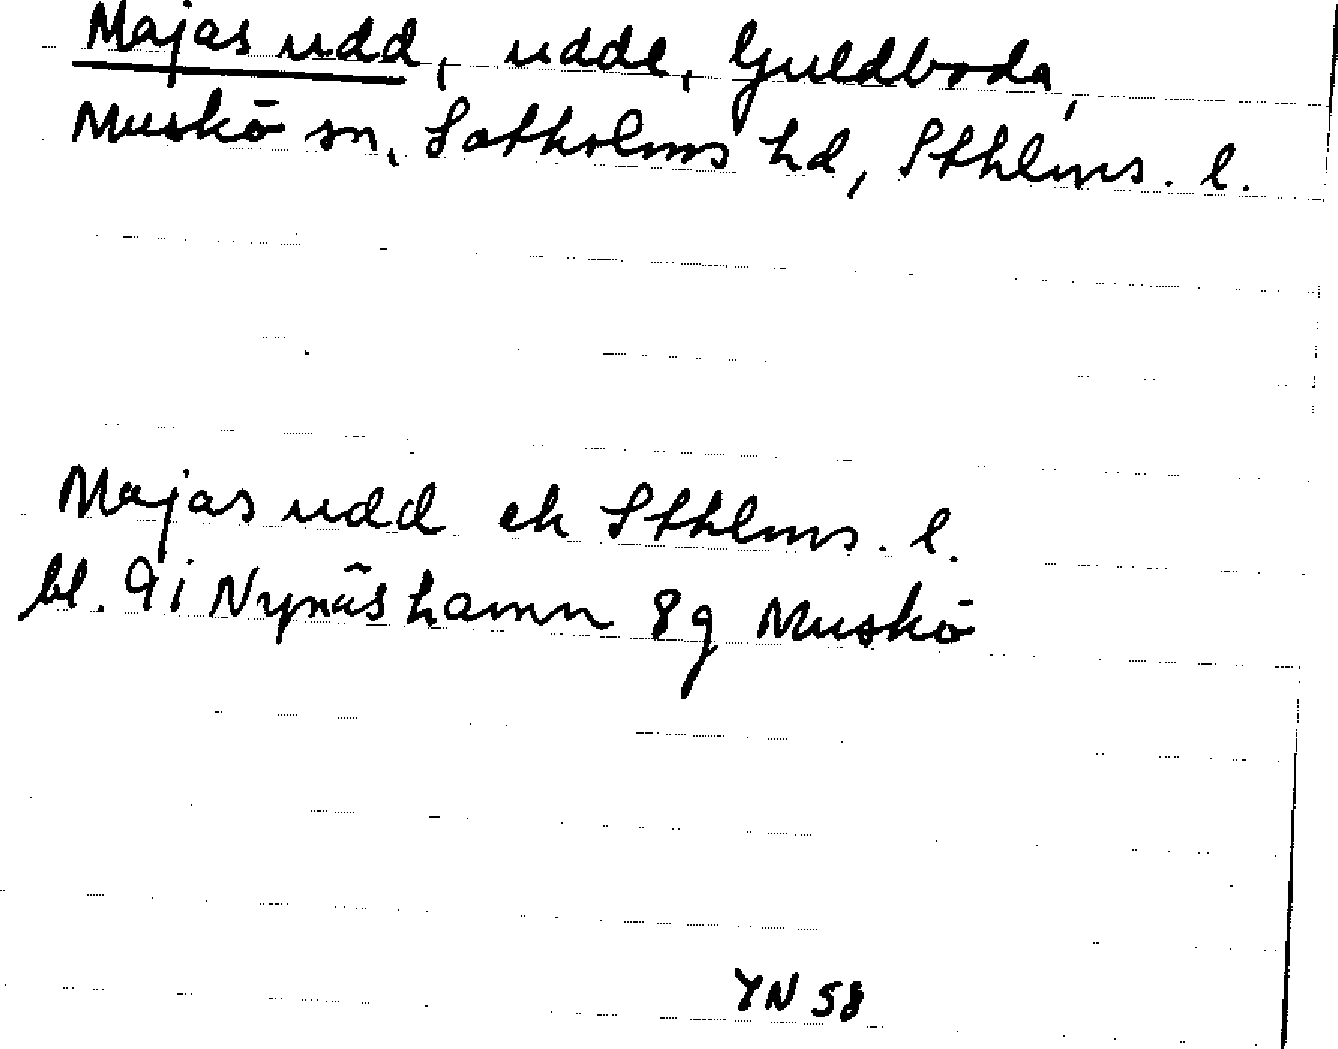 Majas udd, udde, Guldboda,
Muskö sn, Sotholms hd, Sthlms. l.
Majas udd ek Sthlms. l.
bl. 9i Nynäshamn 8g Muskö
YN 58